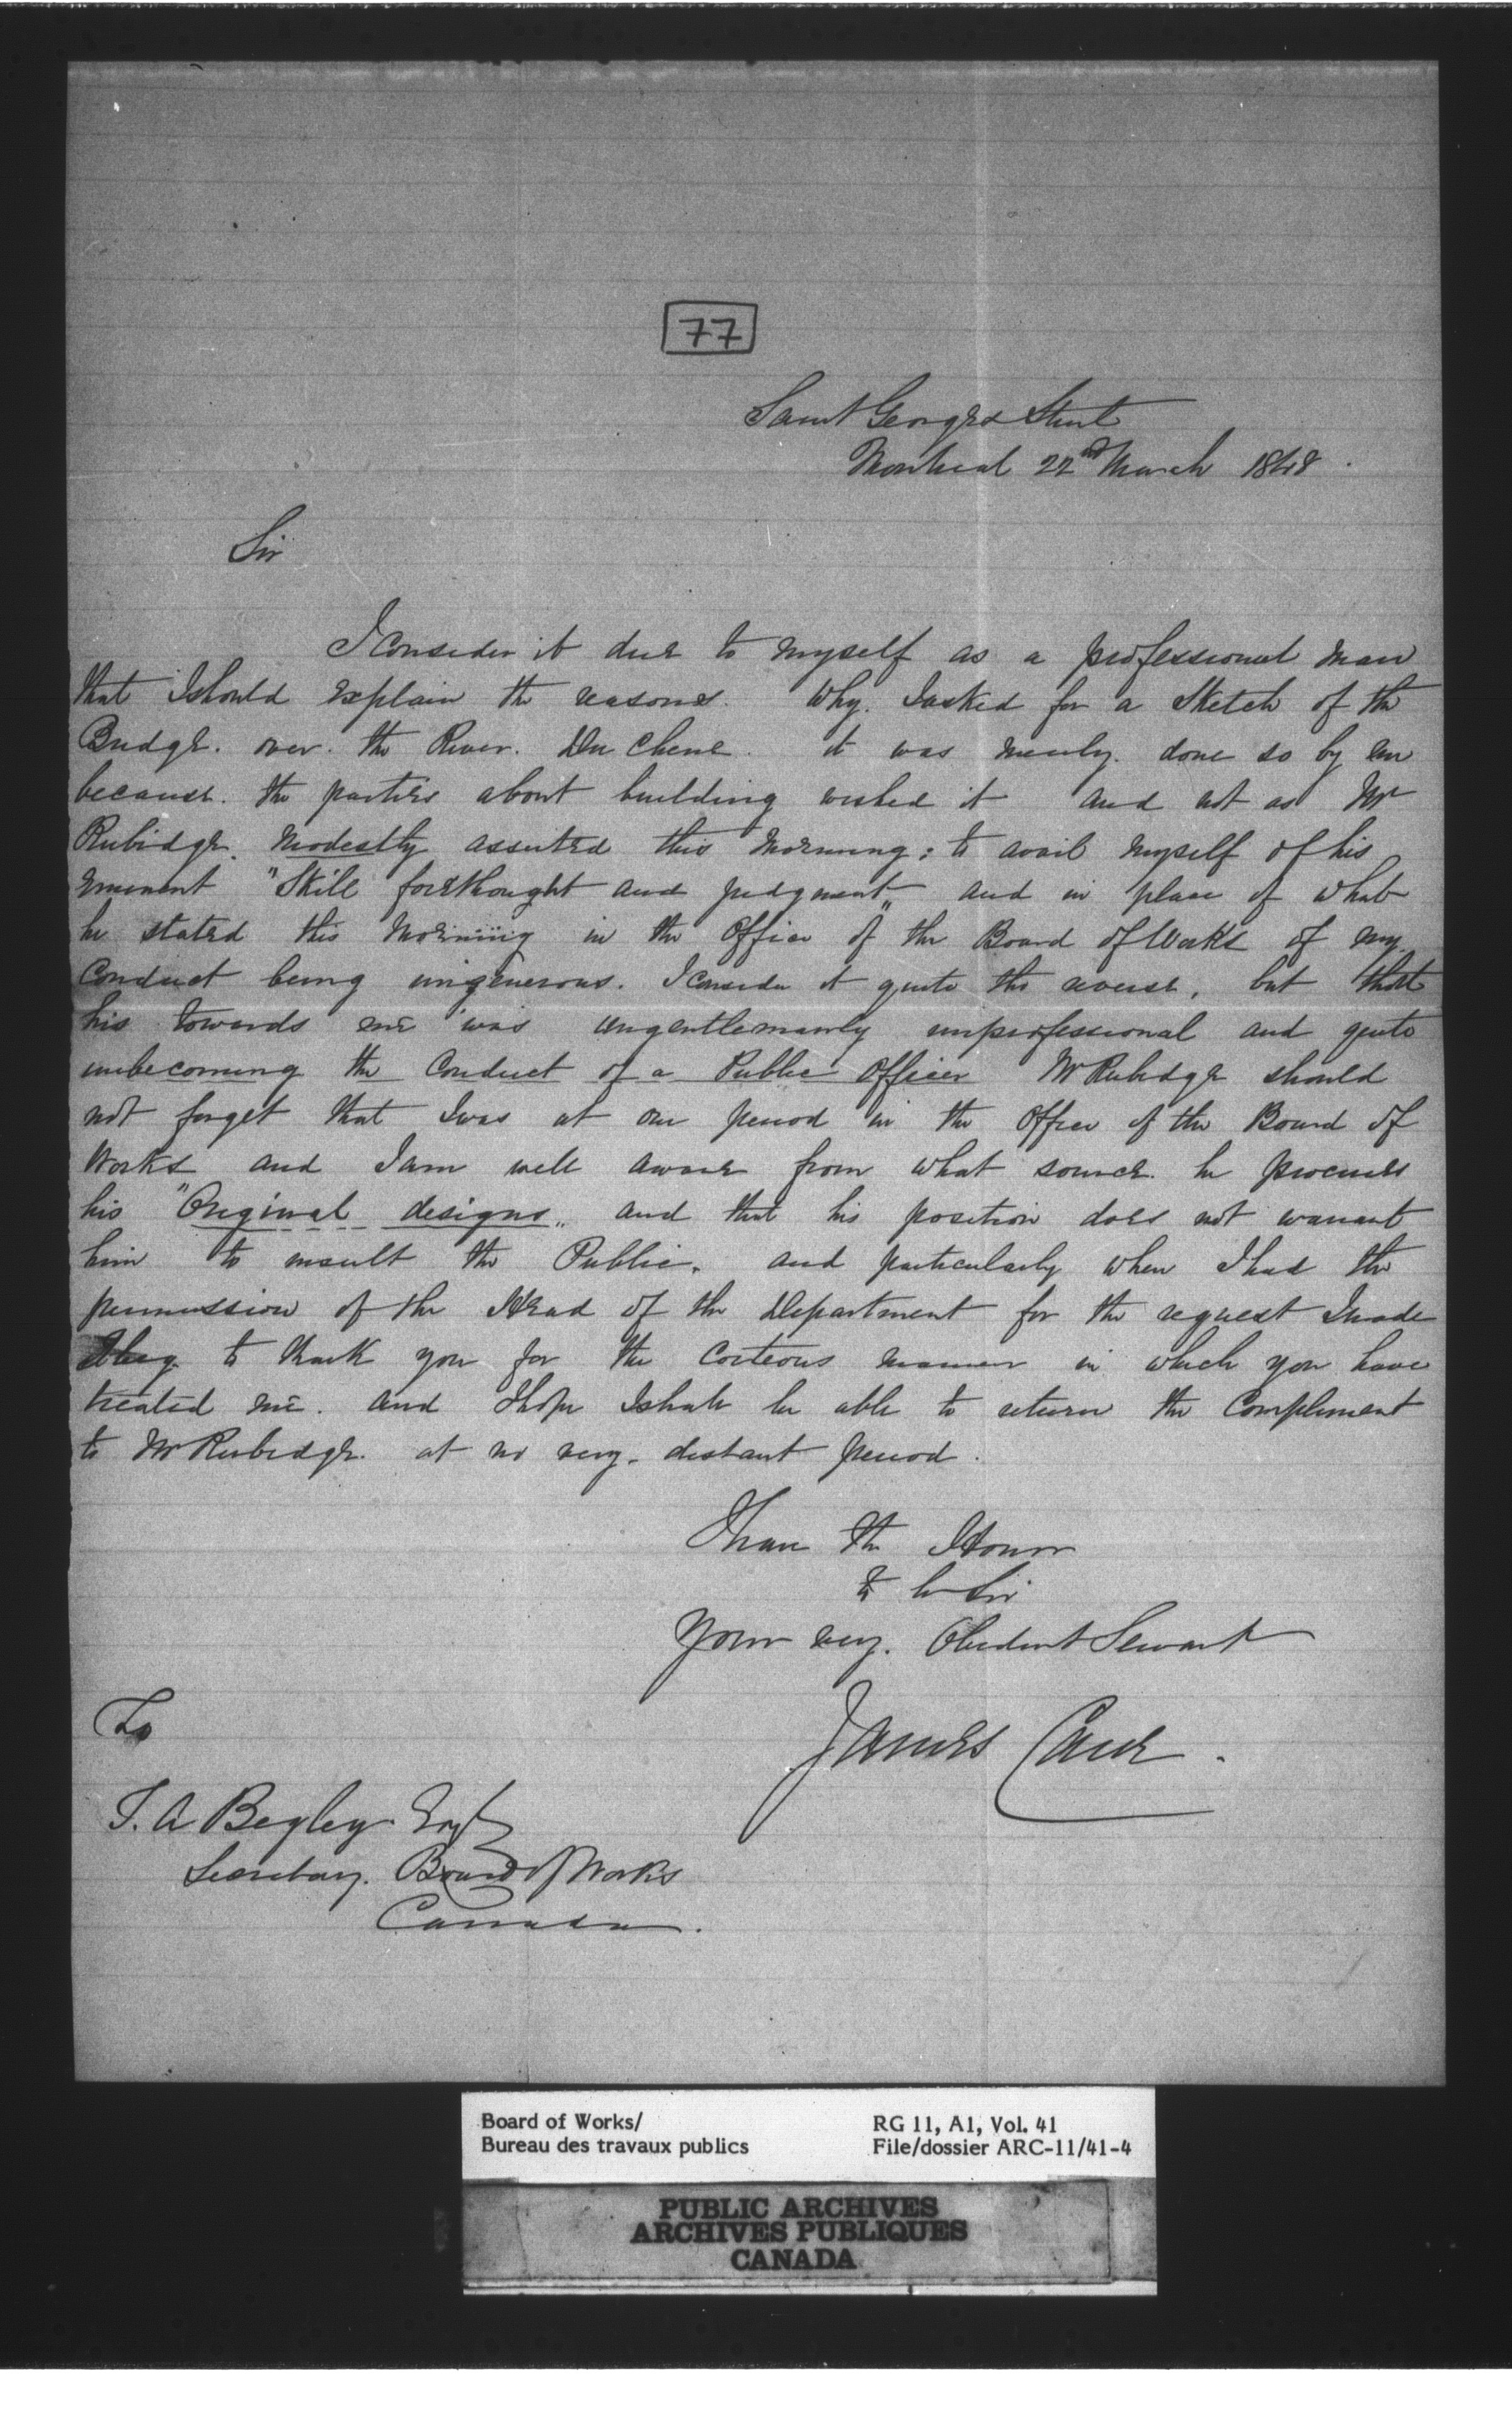 77
Saint Georges Street
Montreal 22nd March 1848.
Sir
I consider it due to myself as a professional man
that I should explain the reasons. Why. I asked for a Sketch of the
Bridge. over. the River. Du Chene. it was merely. done so by me
because. the parties about building wished it and not as Mr
Rubidge. modestly asserted this morning; to avail myself of his
eminent "Skill forethought and judgment" and in place of what
he stated this morning in the Office of the Board of Works of my
Conduct being ungenerous. I consider it quite the reverse, but that
his towards me was ungentlemanly unprofessional and quite
unbecoming the Conduct of a Public Officer Mr Rubidge should
not forget that I was at one period in the Office of the Board of
Works and I am well aware from what source he procures
his "Original designs" and that his position does not warrant
him to insult the Public. and particularly when I had the
permission of the Head of the Department for the request I made
I beg to thank you for the Corteous manner in which you have
treated me. and I hope I shall be able to return the Compliment
to Mr Rubidge. at no very. distant period.
I have the Honor
to be Sir
Your very. Obedient Servant
James
To
T. A Begley Esqr
Secretary. Board of Works
Canada.
Board of Works/
Bureau des travaux publics
RG 11, A1, Vol. 41
File/dossier ARC-11/41-4
PUBLIC ARCHIVES
ARCHIVES PUBLIQUES
CANADA